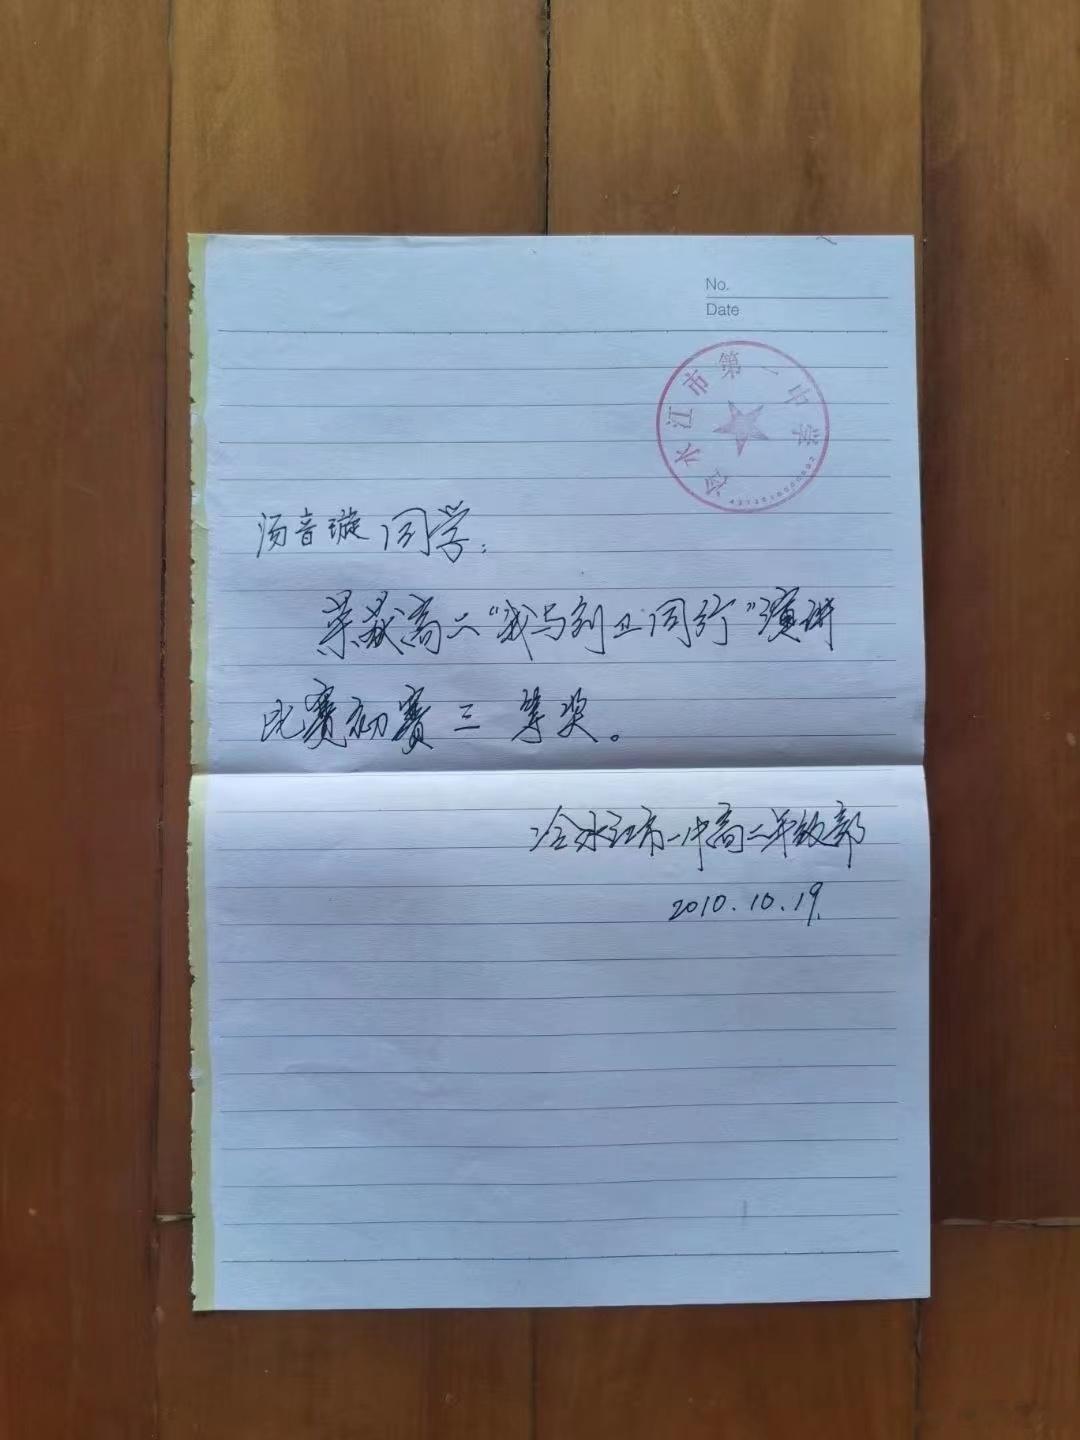 No.
Date
冷水江市第一中学
汤音璇同学：
荣获高二“我与创卫同行”演讲
比赛初赛三等奖。
冷水江市一中高二年级部
2010.10.19.